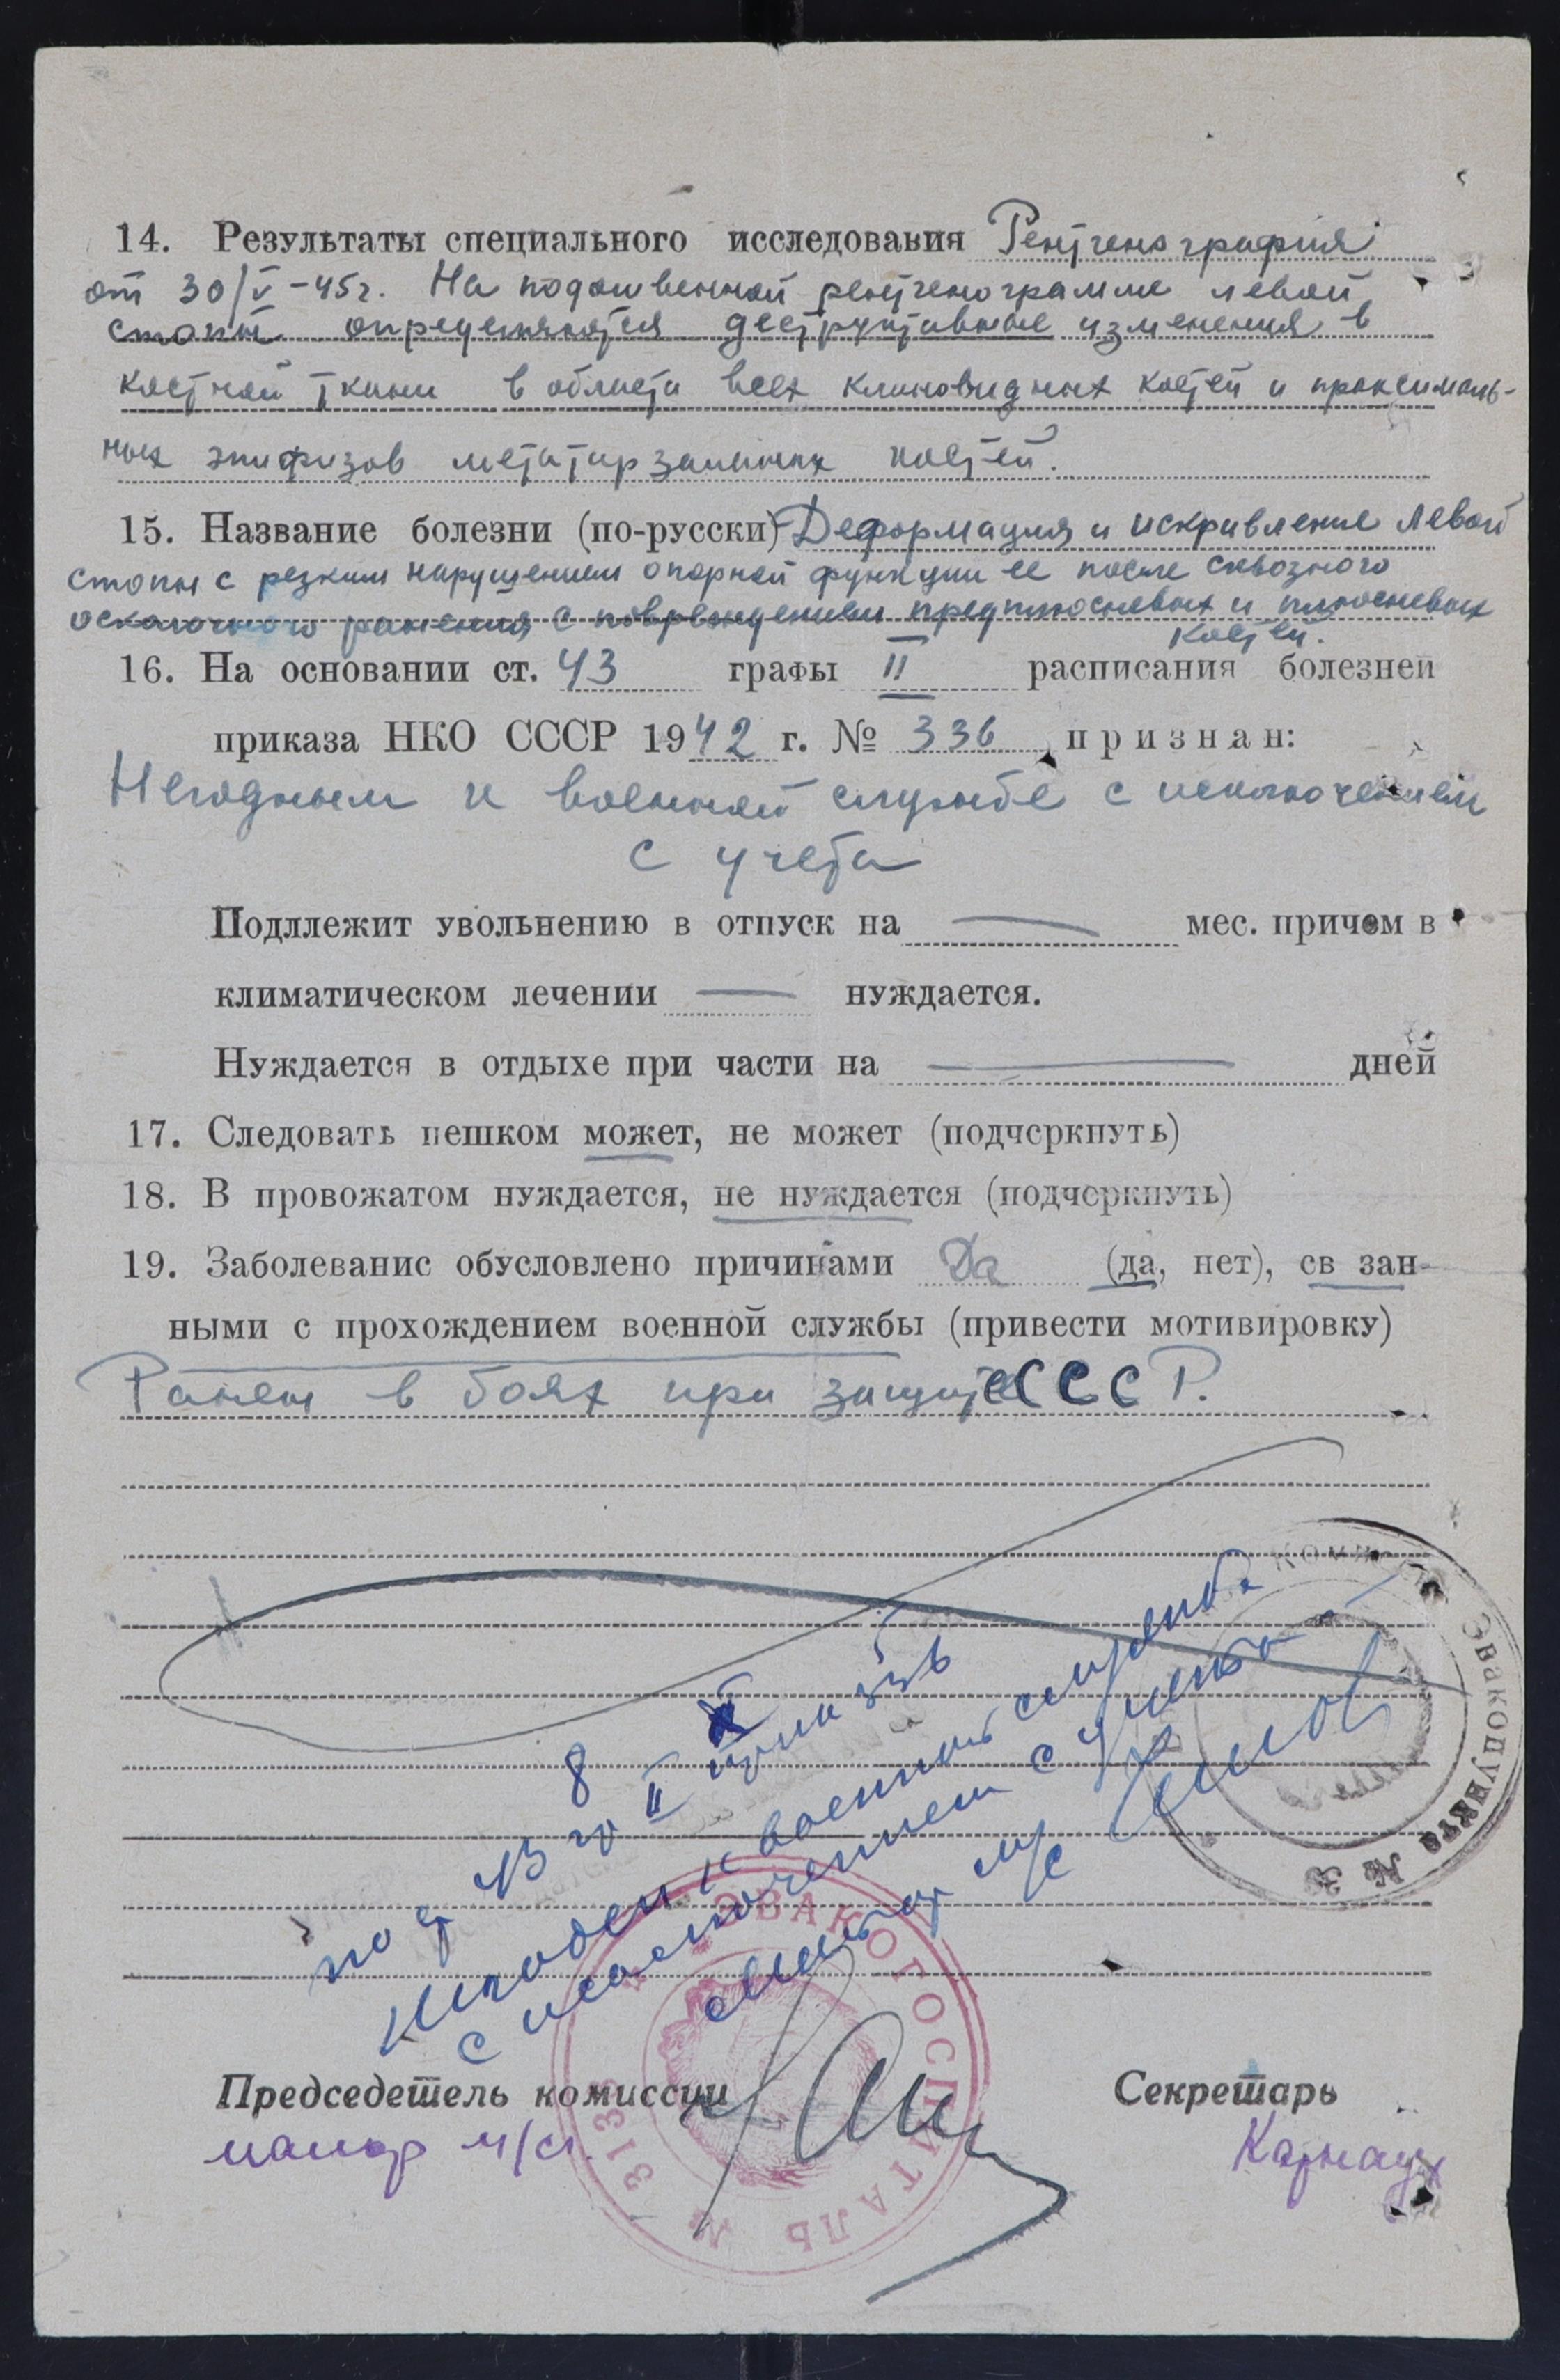 14. Результаты специального исследования Рентгенография
от 30/V-45г. На подошвенной рентгенограмме левой
стопы определяются деструктивные изменения в
костной ткани в области всех клиновидных костей и проксималь-
ных эпифизов метатарзальных костей.
15. Название болезни (по-русски) Деформация и искривление левой
стопы с резким нарушением опорной функции ее после сквозного
осколочного ранения с повреждением предплюсневых и плюсневых
костей.
16. На основании ст. 43 графы II расписания болезней
приказа НКО СССР 1942 г. № 336 признан:
Негодным к военной службе с исключением
с учета
Подллежит увольнению в отпуск на — мес. причем в
климатическом лечении — нуждается.
Нуждается в отдыхе при части на — дней
17. Следовать пешком может, не может (подчеркнуть)
18. В провожатом нуждается, не нуждается (подчеркнуть)
19. Заболевание обусловлено причинами Да (да, нет), св зан-
ными с прохождением военной службы (привести мотивировку)
Ранен в боях при защите СССР.
Комиссия Эвакопункта №
по ст 43 гр II
негоден к военной службе
с исключением с учета
Эвакогоспиталь № 313
Председетель комиссии
майор м/сл.
Секретарь
Карнаух